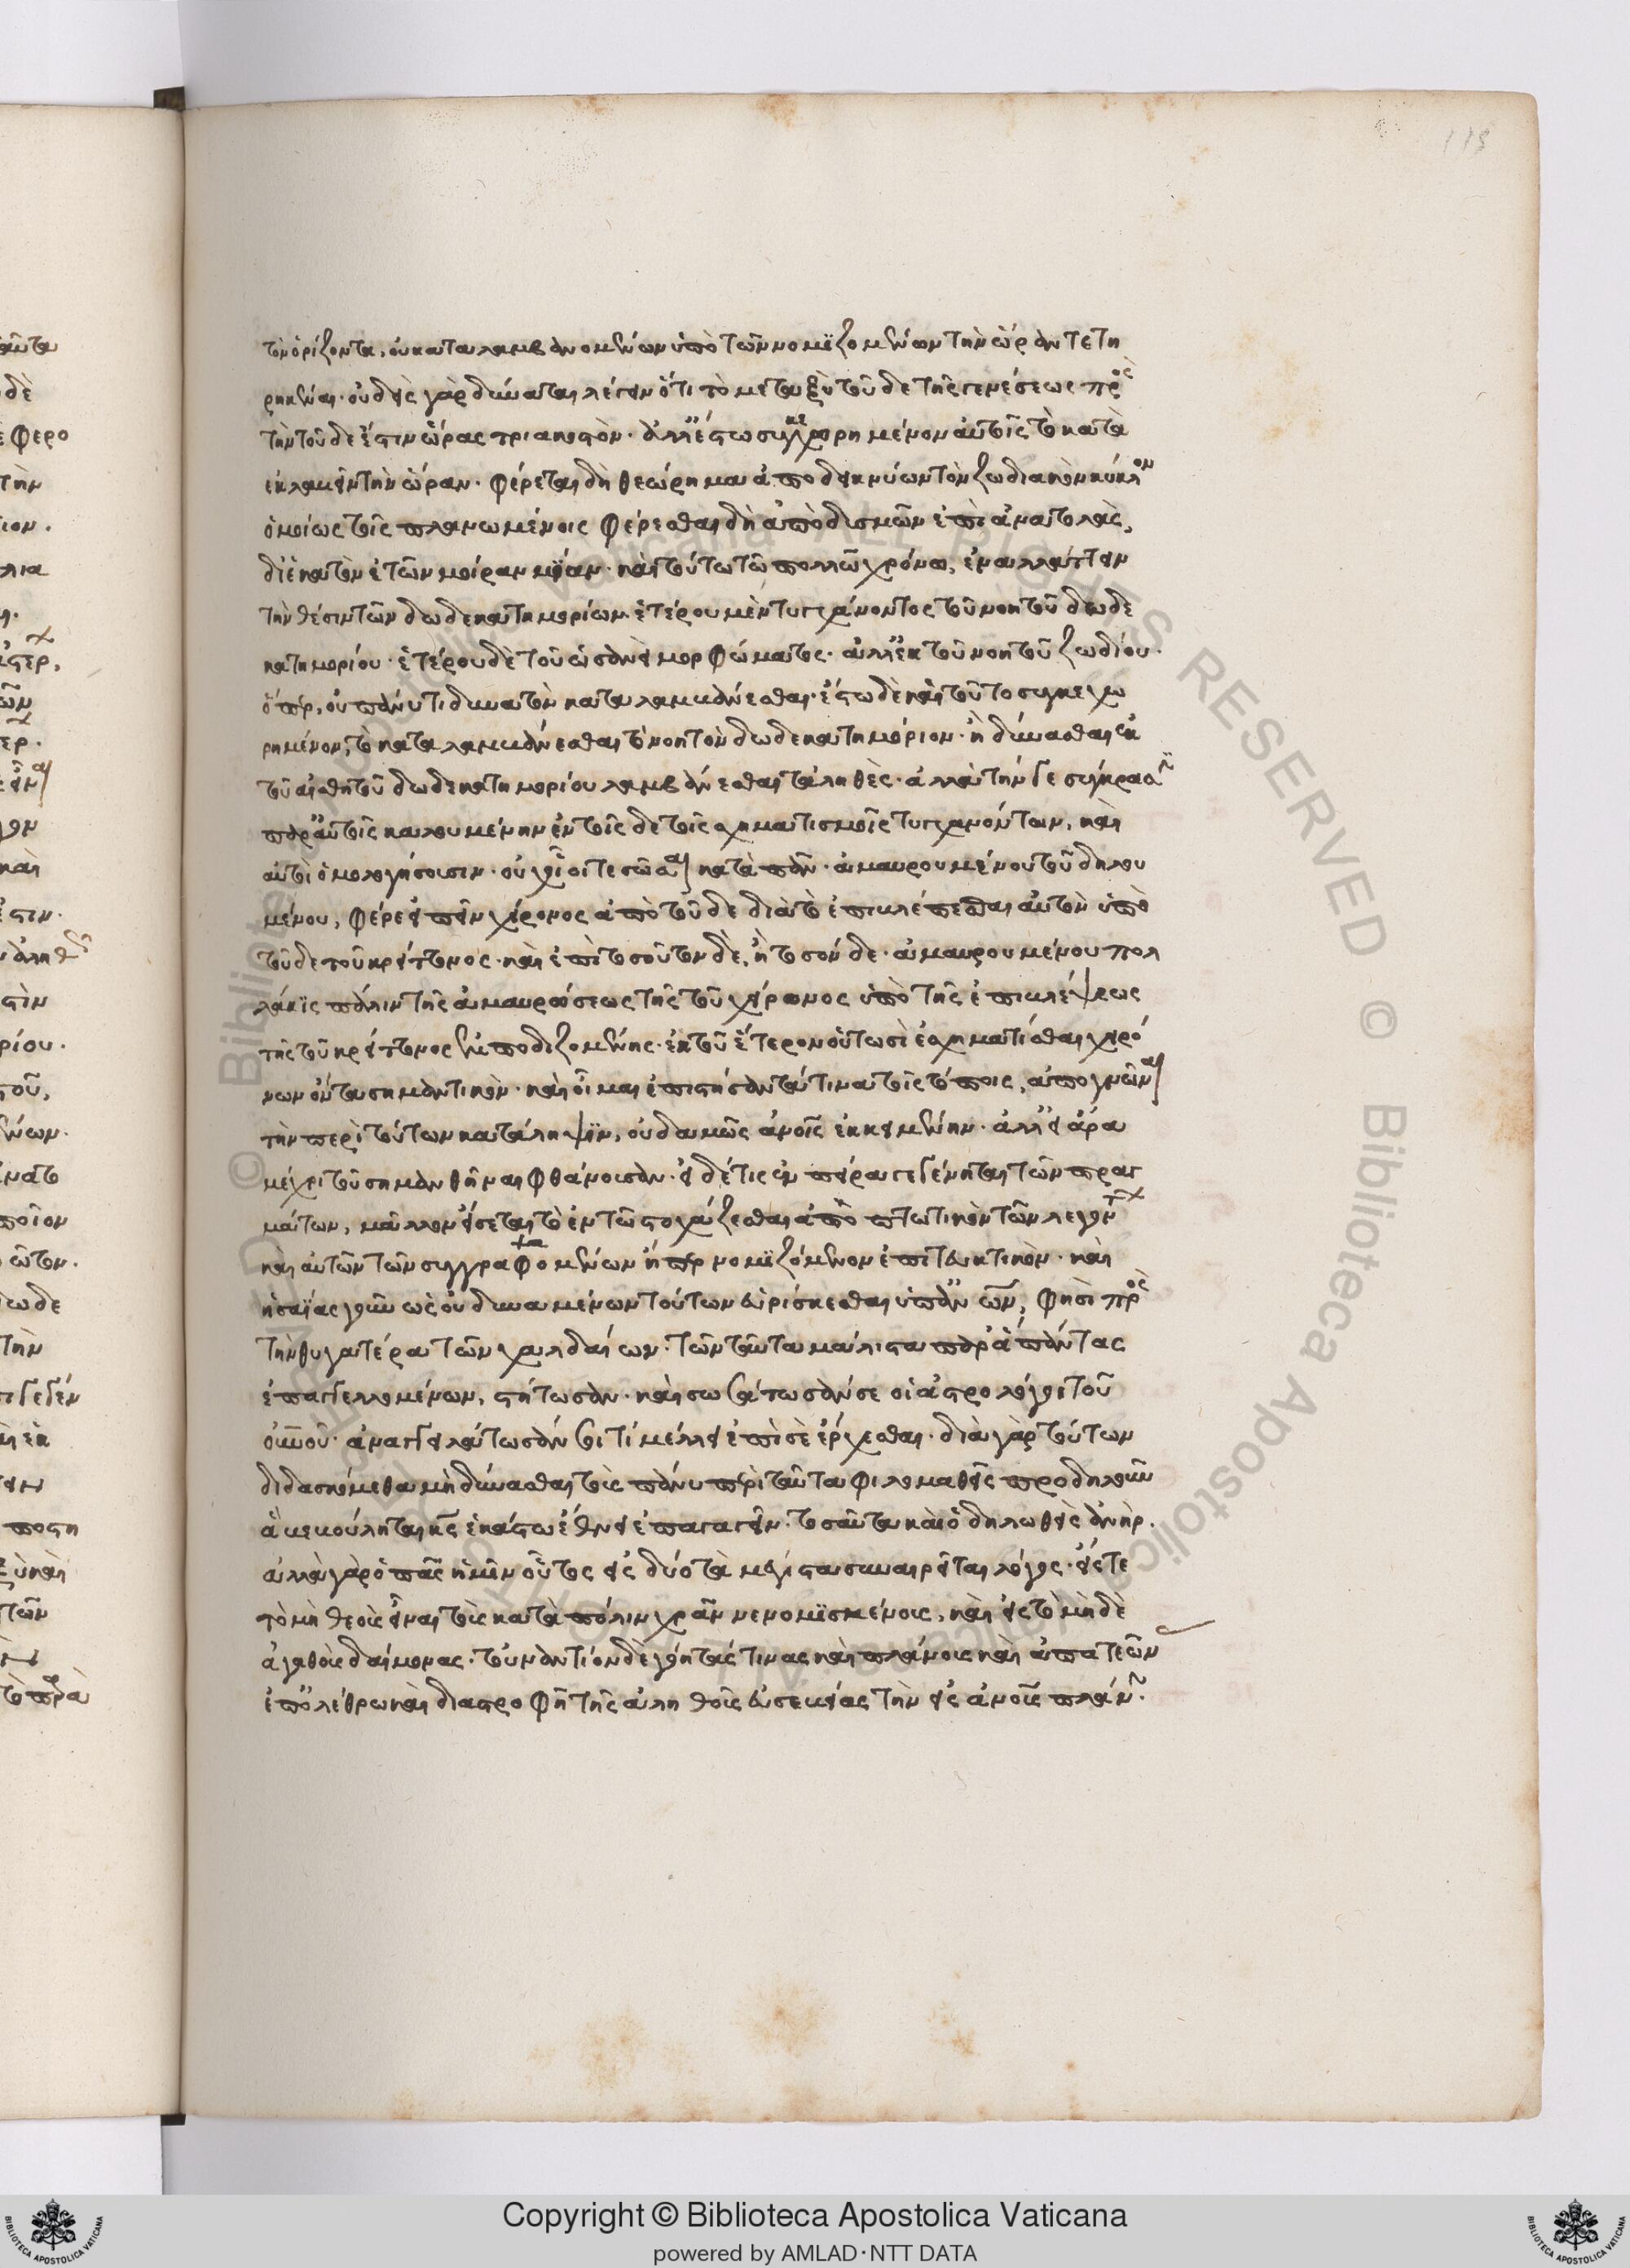 118
τὸν ὁρίζοντα, οὐ καταλαμβανομένων ὑπὸ τῶν νομϊζομένων τὴν ὥραν τετη
ρηκέναι· οὐδεὶς γὰρ δύναται λέγειν ὅτι τὸ μεταξὺ τοῦδε τῆς γενέσεως πρὸς
τὴν τοῦδε ἐστιν ὥρας τριακοστὸν· ἀλλ' ἔστω συγκεχωρημένον αὐτοῖς τὸ κατὰ
τὴν ὥραν· φέρεται δὴ θεώρημα ἀποδεικνύων τὸν ζωδιακὸν κύκλον
ὁμοίως τοῖς πλανωμένοις φέρεσθαι δὴ ἀπὸ δισμῶν ἐπὶ ἀνατολὰς,
δι' ἑκατὸν ἐτῶν μοίραν μΐαν· καὶ τούτω τῶ πολλῶ χρόνω, ἐναλλάττειν
τὴν θέσιν τῶν δωδεκατημορίων. ἑτέρου μὲν τυγχάνοντος τοῦ νοητοῦ δωδε
κατημορίου· ἑτέρου δὲ τοῦ ὡσὰν εἰ μορφώματος· ἀλλ' ἐκ τοῦ νοητοῦ ζωδίου·
ὅπερ, οὐ πάνυ τι δυνατὸν καταλαμβάνεσθαι· ἔστω δὲ καὶ τοῦτο συγκεχω
ρημένον, τὸ καταλαμβάνεσθαι τὸ νοητὸν δωδεκατημόριον· ἢ δύνασθαι ἐκ
τοῦ αἰσθητοῦ δωδεκατημορίου λαμβάνεσθαι τἀληθὲς· ἀλλὰ τήν γε σύγκρασιν
παρ' αὐτοῖς καλουμένην ἐν τοῖς δε τοῖς σχηματισμοῖς τυγχανόντων, καὶ
αὐτοὶ ὁμολογήσουσιν· οὐχ οἷοί τε σῶσαι κατὰ πᾶν· ἀμαυρουμένου τοῦ δηλου
μένου, φέρε εἰπεῖν χείρονος ἀπὸ τοῦδε διὰ τὸ ἐπιβλέπεσθαι αὐτὸν ὑπὸ
τοῦδε τοῦ κρείττονος· καὶ ἐπὶ τοσοῦτον δὲ, ἢ τοσόνδε· ἀμαυρουμένου πολ
λάκϊς πάλιν τῆς ἀμαυρώσεως τῆς τοῦ χείρονος ὑπὸ τῆς ἐπιβλέψεως
τῆς τοῦ κρείττονος ἐμποδιζομένης· ἐκ τοῦ ἕτερον οὑτωσὶ ἐσχηματίσθαι χειρό
νων ὄντα σημαντικὸν· καὶ οἶμαι ἐπιστήσαντά τινα τοῖς τόποις, ἀπογνῶναι
τὴν περὶ τούτων κατάληψϊν, οὐδαμῶς ἀνοῖς ἐκκειμένην· ἀλλ' εἰ ἄρα
μέχρι τοῦ σημανθῆναι φθάνουσαν· εἰ δέ τις ἐν πείρα γεγένηται τῶν πραγ
μάτων, μᾶλλον εἴσεται τὸ ἐν τῶ στοχάζεσθαι ἀποπτωτικὸν τῶν λεγόντων
καὶ αὐτῶν τῶν συγγραφομένων ἤπερ νομϊζόμενον ἐπιτευκτικὸν· καὶ
ἡσαΐας γοῦν ὡς οὐ δυναμένων τούτων εὑρίσκεσθαι ὑπ' ἀνων, φησὶ πρὸς
τὴν θυγατέρα τῶν χαλδαίων· τῶν ταῦτα μάλιστα παρὰ πάντας
ἐπαγγελλομένων, στήτωσαν· καὶ σωσάτωσάν σε οἱ ἀστρολόγοι τοῦ
οὐνοῦ· ἀναγγειλάτωσάν σοι τί μέλλει ἐπὶ σὲ ἔρχεσθαι· διὰ γὰρ τούτων
διδασκόμεθα μὴ δύνασθαι τοὺς πάνυ περὶ ταῦτα φιλομαθεῖς προδηλοῦν
ἃ βεβούληται κς ἑκάστω ἔθνει ἐπαγαγεῖν· τοσαῦτα καὶ ὁ δηλωθεὶς ἀνήρ.
ἀλλὰ γὰρ ὁ πᾶς ἡμῖν οὗτος εἰς δύο τὰ μέγιστα συναιρεῖται λόγος· εἴς τε
τὸ μὴ θεοὺς εἶναι τοὺς κατὰ πόλιν χρᾶν νενομϊσμένους, καὶ εἰς τὸ μὴ δὲ
ἀγαθοὺς δαίμονας· τοὐναντίον δὲ γόητάς τινας καὶ πλάνους καὶ ἀπατεῶν
ἐπ' ὀλέθρω καὶ διαστροφῆ τῆς ἀληθοῦς εὐσεβείας τὴν εἰς ἀνους πλάνην.
Copyright © Biblioteca Apostolica Vaticana
powered by AMLAD·NTT DATA